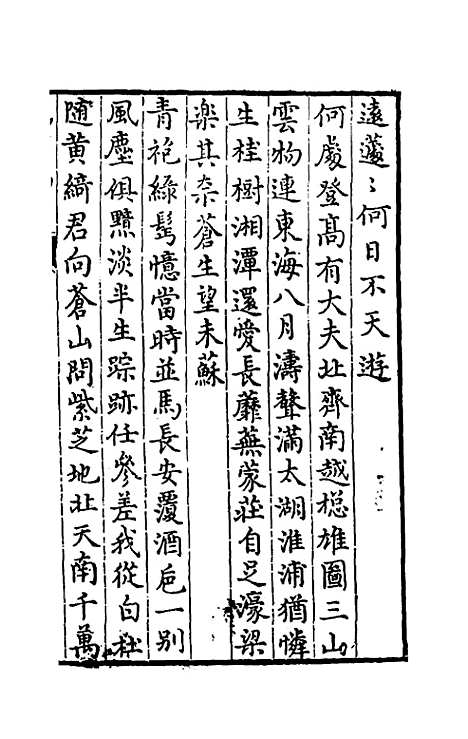 遠蘧〻何日不天遊
何處登髙有大夫北齊南越緫雄圖三山
雲物連東海八月濤聲滿太湖淮浦猶憐
生桂樹湘潭還愛長蘼蕪蒙莊自足濠梁
樂其柰蒼生望未蘇
青袍綠髩憶當時並馬長安覆酒卮一別
風塵俱黯淡半生踪跡任參差我從白社
随黄綺君向蒼山問紫芝地北天南千萬